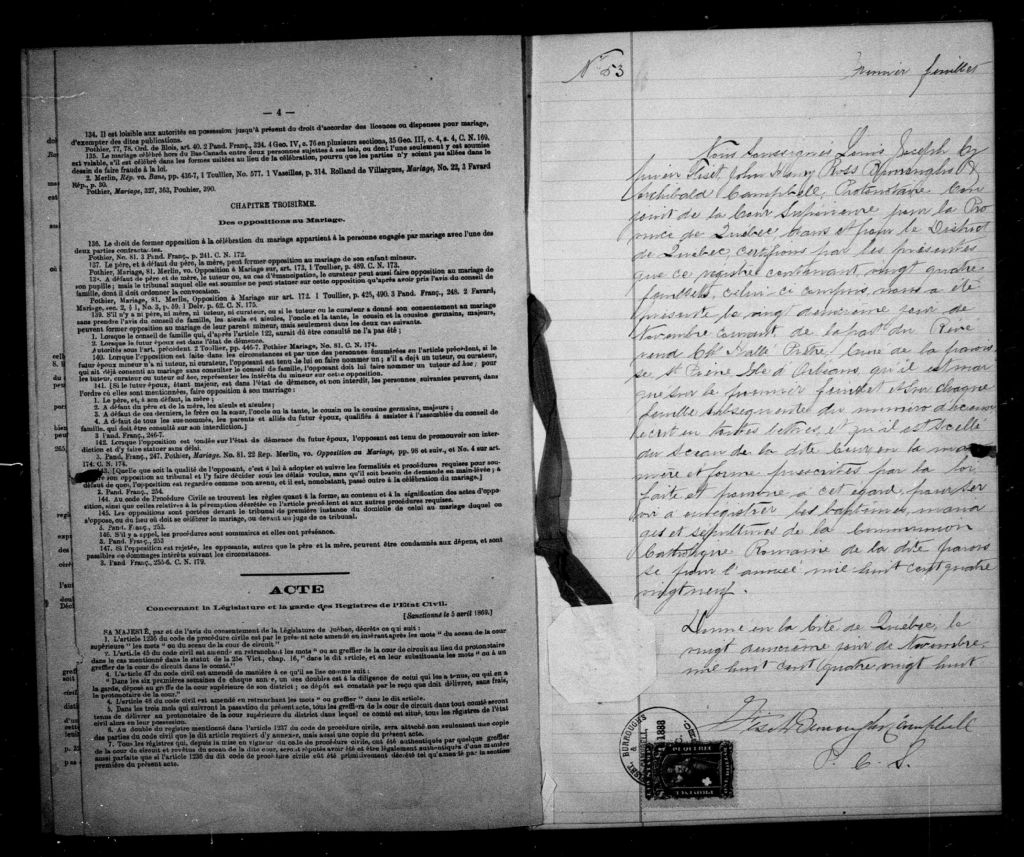 — 4 —
134. Il est loisible aux autorités en possession jusqu'à présent du droit d'accorder des licences ou dispenses pour mariage,
d'exempter des dites publications.
Pothier, 77, 78. Ord. de Blois, art. 40. 2 Pand. Franç., 324. 4 Geo. IV, c. 76 en plusieurs sections, 35 Geo. III, c. 4, s. 4, C. N. 169.
135. Le mariage célébré hors du Bas-Canada entre deux personnes sujettes à ses lois, ou dont l'une seulement y est soumise
est valable, s'il est célébré dans les formes usitées au lieu de la célébration, pourvu que les parties n'y soient pas allées dans le
dessin de faire fraude à la loi.
2. Merlin, Rép. vo. Bans, pp. 436-7, 1 Toullier, No. 577. 1 Vaseilles, p. 314. Rolland de Villargues, Mariage, No. 22, 3 Favard
Rép., p. 50.
Pothier, Mariage, 327, 363, Pouhier, 390.
CHAPITRE TROISIÈME.
Des oppositions au Mariage.
136. Le droit de former opposition à la célébration du mariage appartient à la personne engagée par mariage avec l'une des
deux parties contractantes.
Pothier, No. 81. 3 Pand. Franç., p. 241. C. N. 172.
137. Le père, et à défaut du père, la mère, peut former opposition au mariage de son enfant mineur.
Pothier, Mariage, 81. Merlin, vo. Opposition à Mariage sur, art. 173, 1 Toullier, p. 489. C. N. 173.
138. A défaut de père et de mère, le tuteur ou, au cas d'émancipation, le curateur peut aussi faire opposition au mariage de
son pupille; mais le tribunal auquel elle est soumise ne peut statuer sur cette opposition qu'après avoir pris l'avis du conseil de
famille, dont il doit ordonner la convocation.
Pothier, Mariage, 81. Merlin, Opposition à Mariage sur art. 172. 1 Toullier, p. 425, 490. 3 Pand. Franç., 248. 2 Favard,
Mariage, sec. 2, § 1, No. 3, p. 59. 1 Delv, p. 62. C. N. 175.
139. S'il n'y a ni père, ni mère, ni tuteur, ni curateur, ou si le tuteur ou le curateur a donné son consentement au mariage
sans prendre l'avis du conseil de famille, les aïeuls et aïeules, l'oncle et la tante, le cousin et la cousine germains, majeurs,
peuvent former opposition au mariage de leur parent mineur, mais seulement dans les deux cas suivants.
1. Lorsque le conseil de famille qui, d'après l'article 122, aurait du être consulté ne l'a pas été;
2. Lorsque le futur époux est dans l'état de démence.
Autorités sous l'art. précédent. 2 Toullier, pp. 446-7. Pothier Mariage, No. 81. C. N. 174.
140. Lorsque l'opposition est faite dans les circonstances et par une des personnes énumérées en l'article précédent, si le
futur époux mineur n'a ni tuteur, ni curateur, l'opposant est tenu de lui en faire nommer un; s'il a déjà un tuteur, ou curateur,
qui ait déjà consenti au mariage sans consulter le conseil de famille, l'opposant doit lui faire nommer un tuteur ad hoc; pour
les tuteur, curateur ou tuteur ad hoc, représenter les intérêts du mineur sur cette opposition.
141. [Si le futur époux, étant majeur, est dans l'état de démence, et non interdit, les personnes suivantes peuvent, dans
l'ordre où elles sont mentionnées, faire opposition à son mariage:
1. Le père, et, à son défaut, la mère;
2. A défaut du père et de la mère, les aïeuls et aïeules;
3. A défaut de ces derniers, le frère ou la sœur, l'oncle ou la tante, le cousin ou la cousine germains, majeurs;
4. A défaut de tous les sus-nommés, les parents et alliés du futur époux, qualifiés à assister à l'assemblée du conseil de
famille, qui doit être consulté sur son interdiction.]
3 Pand. Franç., 246-7.
142. Lorsque l'opposition est fondée sur l'état de démence du futur époux, l'opposant est tenu de promouvoir son inter-
diction et d'y faire statuer sans délai.
3. Pand. Franç., 247. Pothier, No. 81. 22 Rep. Merlin, vo. Opposition au Mariage, pp. 98 et suiv., et No. 4 sur art.
174: C. N. 174.
143. [Quelle que soit la qualité de l'opposant, c'est à lui à adopter et suivre les formalités et procédures requises pour sou-
mettre son opposition au tribunal et l'y faire décider sous les délais voulus, sans qu'il soit besoin de demande en main-levée; à
défaut de quoi, l'opposition est regardée comme non avenue, et il est, nonobstant, passé outre à la célébration du mariage.]
2. Pand. Franç., 254.
144. Au code de Procédure Civile se trouvent les règles quant à la forme, au contenu et à la signification des actes d'oppo-
sition, ainsi que celles relatives à la péremption décrétée en l'article précédent et aux autres procédures requises.
145. Les oppositions sont portées devant le tribunal de première instance du domicile de celui au mariage duquel on
s'oppose, ou du lieu où doit se célébrer le mariage, ou devant un juge de ce tribunal.
5. Pand. Franç., 253.
146. S'il y a appel, les procédures sont sommaires et elles ont préséance.
3. Pand. Franç., 253
147. Si l'opposition est rejetée, les opposants, autres que le père et la mère, peuvent être condamnés aux dépens, et sont
passibles de dommages intérêts suivant les circonstances.
3. Pand Franç., 255-6. C. N. 179.
ACTE
Concernant la Législature et la garde des Registres de l'Etat Civil.
[Sanctionné le 5 avril 1869.]
SA MAJESTÉ, par et de l'avis du consentement de la Législature de Québec, décrète ce qui suit:
1. L'article 1236 du code de procédure civile est par le présent acte amendé en insérant après les mots "du sceau de la cour
supérieure" les mots "ou du sceau de la cour de circuit."
2. L'article 45 du code civil est amendé en retranchant les mots "ou au greffier de la cour de circuit au lieu du protonotaire
dans le cas mentionné dans le statut de la 25e Vict., chap. 16," dans le dit article, et en leur substituant les mots "ou à un
greffier de la cour de circuit dans le comté."
3. L'article 47 du code civil est amendé de manière à ce qu'il se lise comme suit:
"Dans les six premières semaines de chaque année, un des doubles est à la diligence de celui qui les a tenus, ou qui en a
la garde, déposé au greffe de la cour supérieure de son district; ce dépôt est constaté par le reçu que doit délivrer, sans frais,
le protonotaire de la cour."
4. L'article 48 du code civil est amendé en retranchant les mots "ou greffier" dans le dit article.
5. Dans les trois mois qui suivront la passation du présent acte, tous les greffiers de la cour de circuit dans tout comté seront
tenus de délivrer au protonotaire de la cour supérieure du district dans lequel ce comté est situé, tous les registres de l'état
civil alors en leur possession.
6. Au double du registre mentionné dans l'article 1237 du code de procédure civile, sera attaché non seulement une copie
des parties du code civile que la dit article requiert d'y annexer, mais aussi une copie du présent acte.
7. Tous les registres qui, depuis la mise en vigueur du code de procédure civile, ont été authentiqués par quelque greffier
de la cour de circuit et revêtus du sceau de la dite cour, seront réputés avoir été et être légalement authentiqués d'une manière
aussi parfaite que si l'article 1236 du dit code de procédure civile eût été primitivement décrété tel qu'amendé par la section
première du présent acte.
No 53
Premier feuillet
Nous Soussignés Louis Joseph Cy
prien Fiset John Henry Ross Burroughs &
Archibald Campbell, Protonotaire Con
joint de la Cour Supérieure pour la Pro
vince de Québec dans et pour le District
de Québec certifions par les présentes
que ce registre contenant vingt quatre
feuillets, celui-ci compris, nous a été
présenté le vingt deuxième jour de
Novembre courant de la part du Révé
rend Prêtre Curé de la parois
se St Pierre Isle d'Orléans, qu'il est mar
qué sur le premier feuillet et sur chaque
feuille subséquente du numéro d'icelui
écrit en toutes lettres et qu'il est Scellé
du sceau de la dite Cour en la ma
nière et forme prescrites par la loi
faite et pourvue à cet égard pour ser
vir à enregistrer les baptêmes, maria
ges et sépultures de la Communion
Catholique Romaine de la dite parois
se pour l'année mil huit cent quatre
vingt neuf.
Donné en la Cité de Québec, le
vingt deuxième jour de Novembre
mil huit cent quatre vingt huit
Fiset Burroughs Campbell
P. C. S.
FISET, BURROUGHS & CAMPBELL
1888
QUEBEC